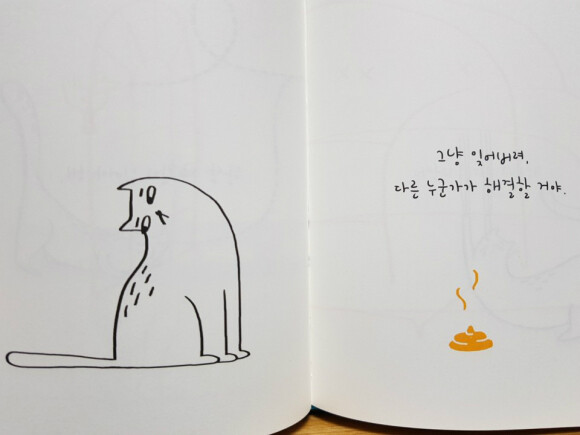 그냥 잊어버려,
다른 누군가가 해결할 거야.